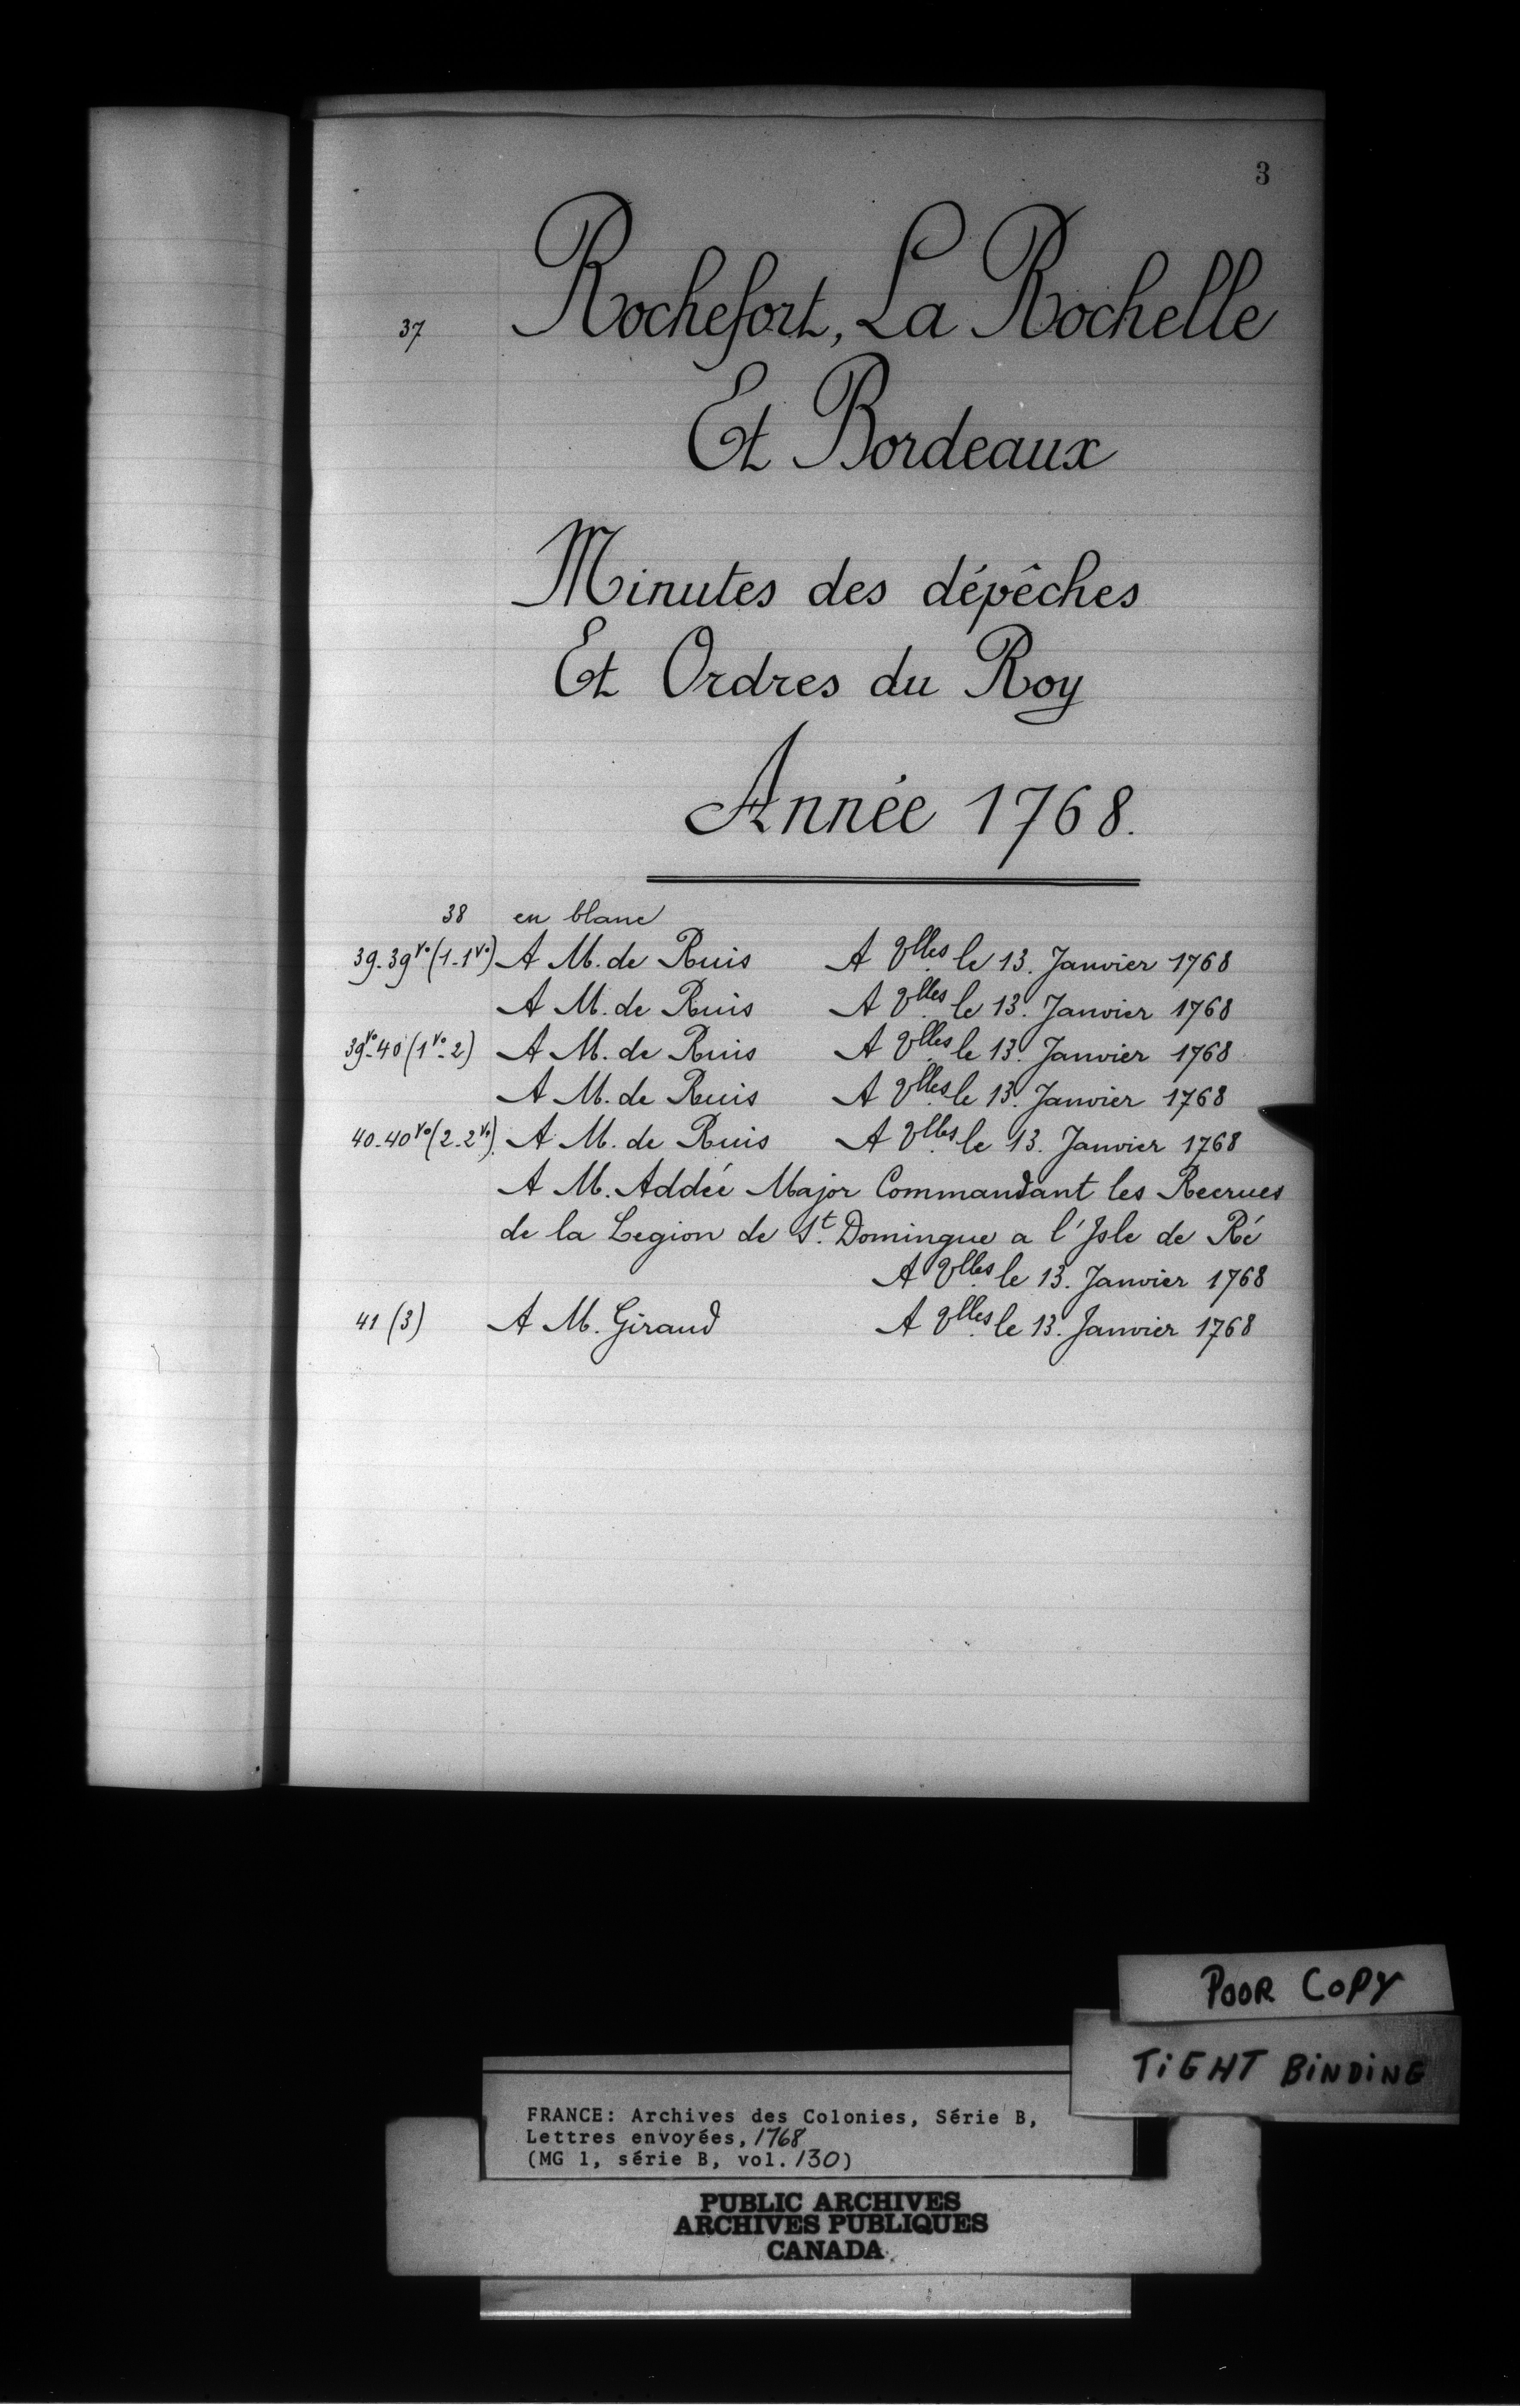 3
37 Rochefort, La Rochelle
Et Bordeaux
Minutes des dépêches
Et Ordres du Roy
Année 1768.
38 en blanc
39-39vo (1-1vo) A M. de Ruis A Vlles le 13. Janvier 1768
A M. de Ruis A Vlles le 13. Janvier 1768
39vo-40 (1vo-2) A M. de Ruis A Vlles le 13. Janvier 1768
A M. de Ruis A Vlles le 13. Janvier 1768
40-40vo (2-2vo). A M. de Ruis A Vlles le 13. Janvier 1768
A M. Addée Major Commandant les Recrues
de la Legion de St. Domingue a l'Isle de Ré
A Vlles le 13. Janvier 1768
41 (3) A M. Giraud A Vlles le 13. Janvier 1768
POOR COPY
TIGHT BINDING
FRANCE: Archives des Colonies, Série B,
Lettres envoyées, 1768
(MG 1, série B, vol. 130)
PUBLIC ARCHIVES
ARCHIVES PUBLIQUES
CANADA